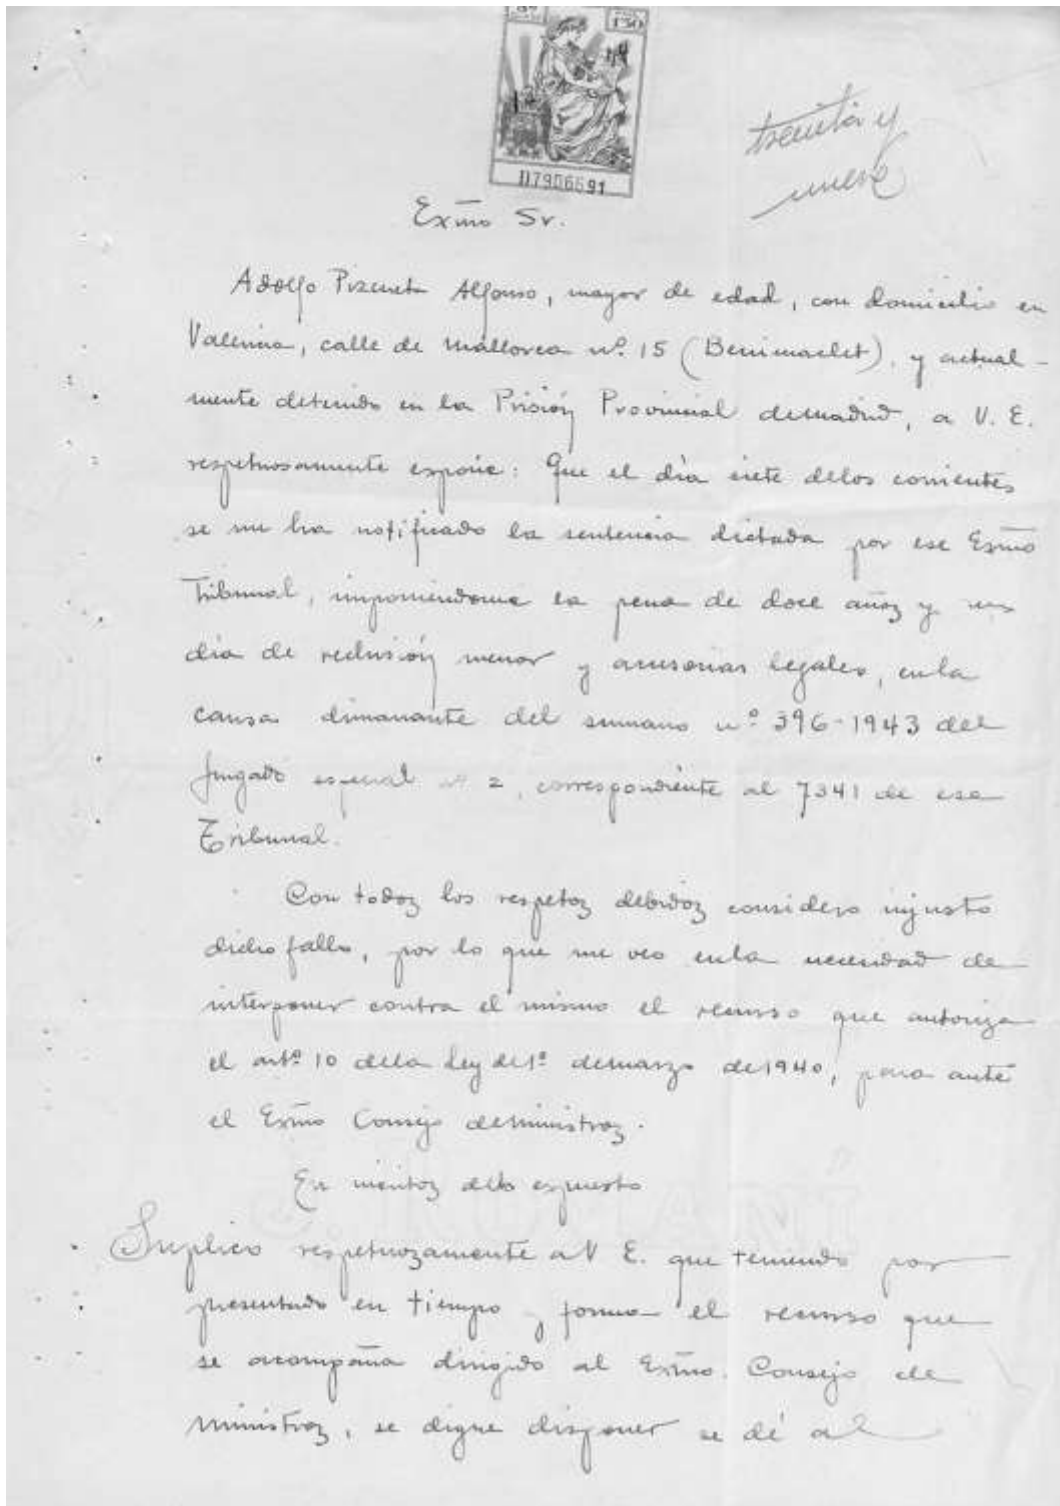 1'50
D7906691
treinta y
nueve
Exmo Sr.
Adolfo Pizcueta Alfonso, mayor de edad, con domicilio en
Valencia, calle de Mallorca nº. 15 (Benimaclet), y actual-
mente detenido en la Prisión Provincial de Madrid, a V. E.
respetuosamente expone: Que el día siete de los corrientes
se me ha notificado la sentencia dictada por ese Exmo
Tribunal, imponiendome la pena de doce años y un
día de reclusión menor y accesorias legales, en la
causa dimanante del sumario nº. 396-1943 del
Juzgado especial nº 2, correspondiente al 7341 de ese
Tribunal.
Con todos los respetos debidos considero injusto
dicho fallo, por lo que me veo en la necesidad de
interponer contra el mismo el recurso que autoriza
el artº 10 de la Ley de 1º de marzo de 1940, para ante
el Exmo Consejo de Ministros.
En meritos de lo expuesto
Suplico respetuosamente a V. E. que teniendo por
presentado en tiempo y forma el recurso que
se acompaña dirigido al Exmo. Consejo de
Ministros, se digne disponer se dé al